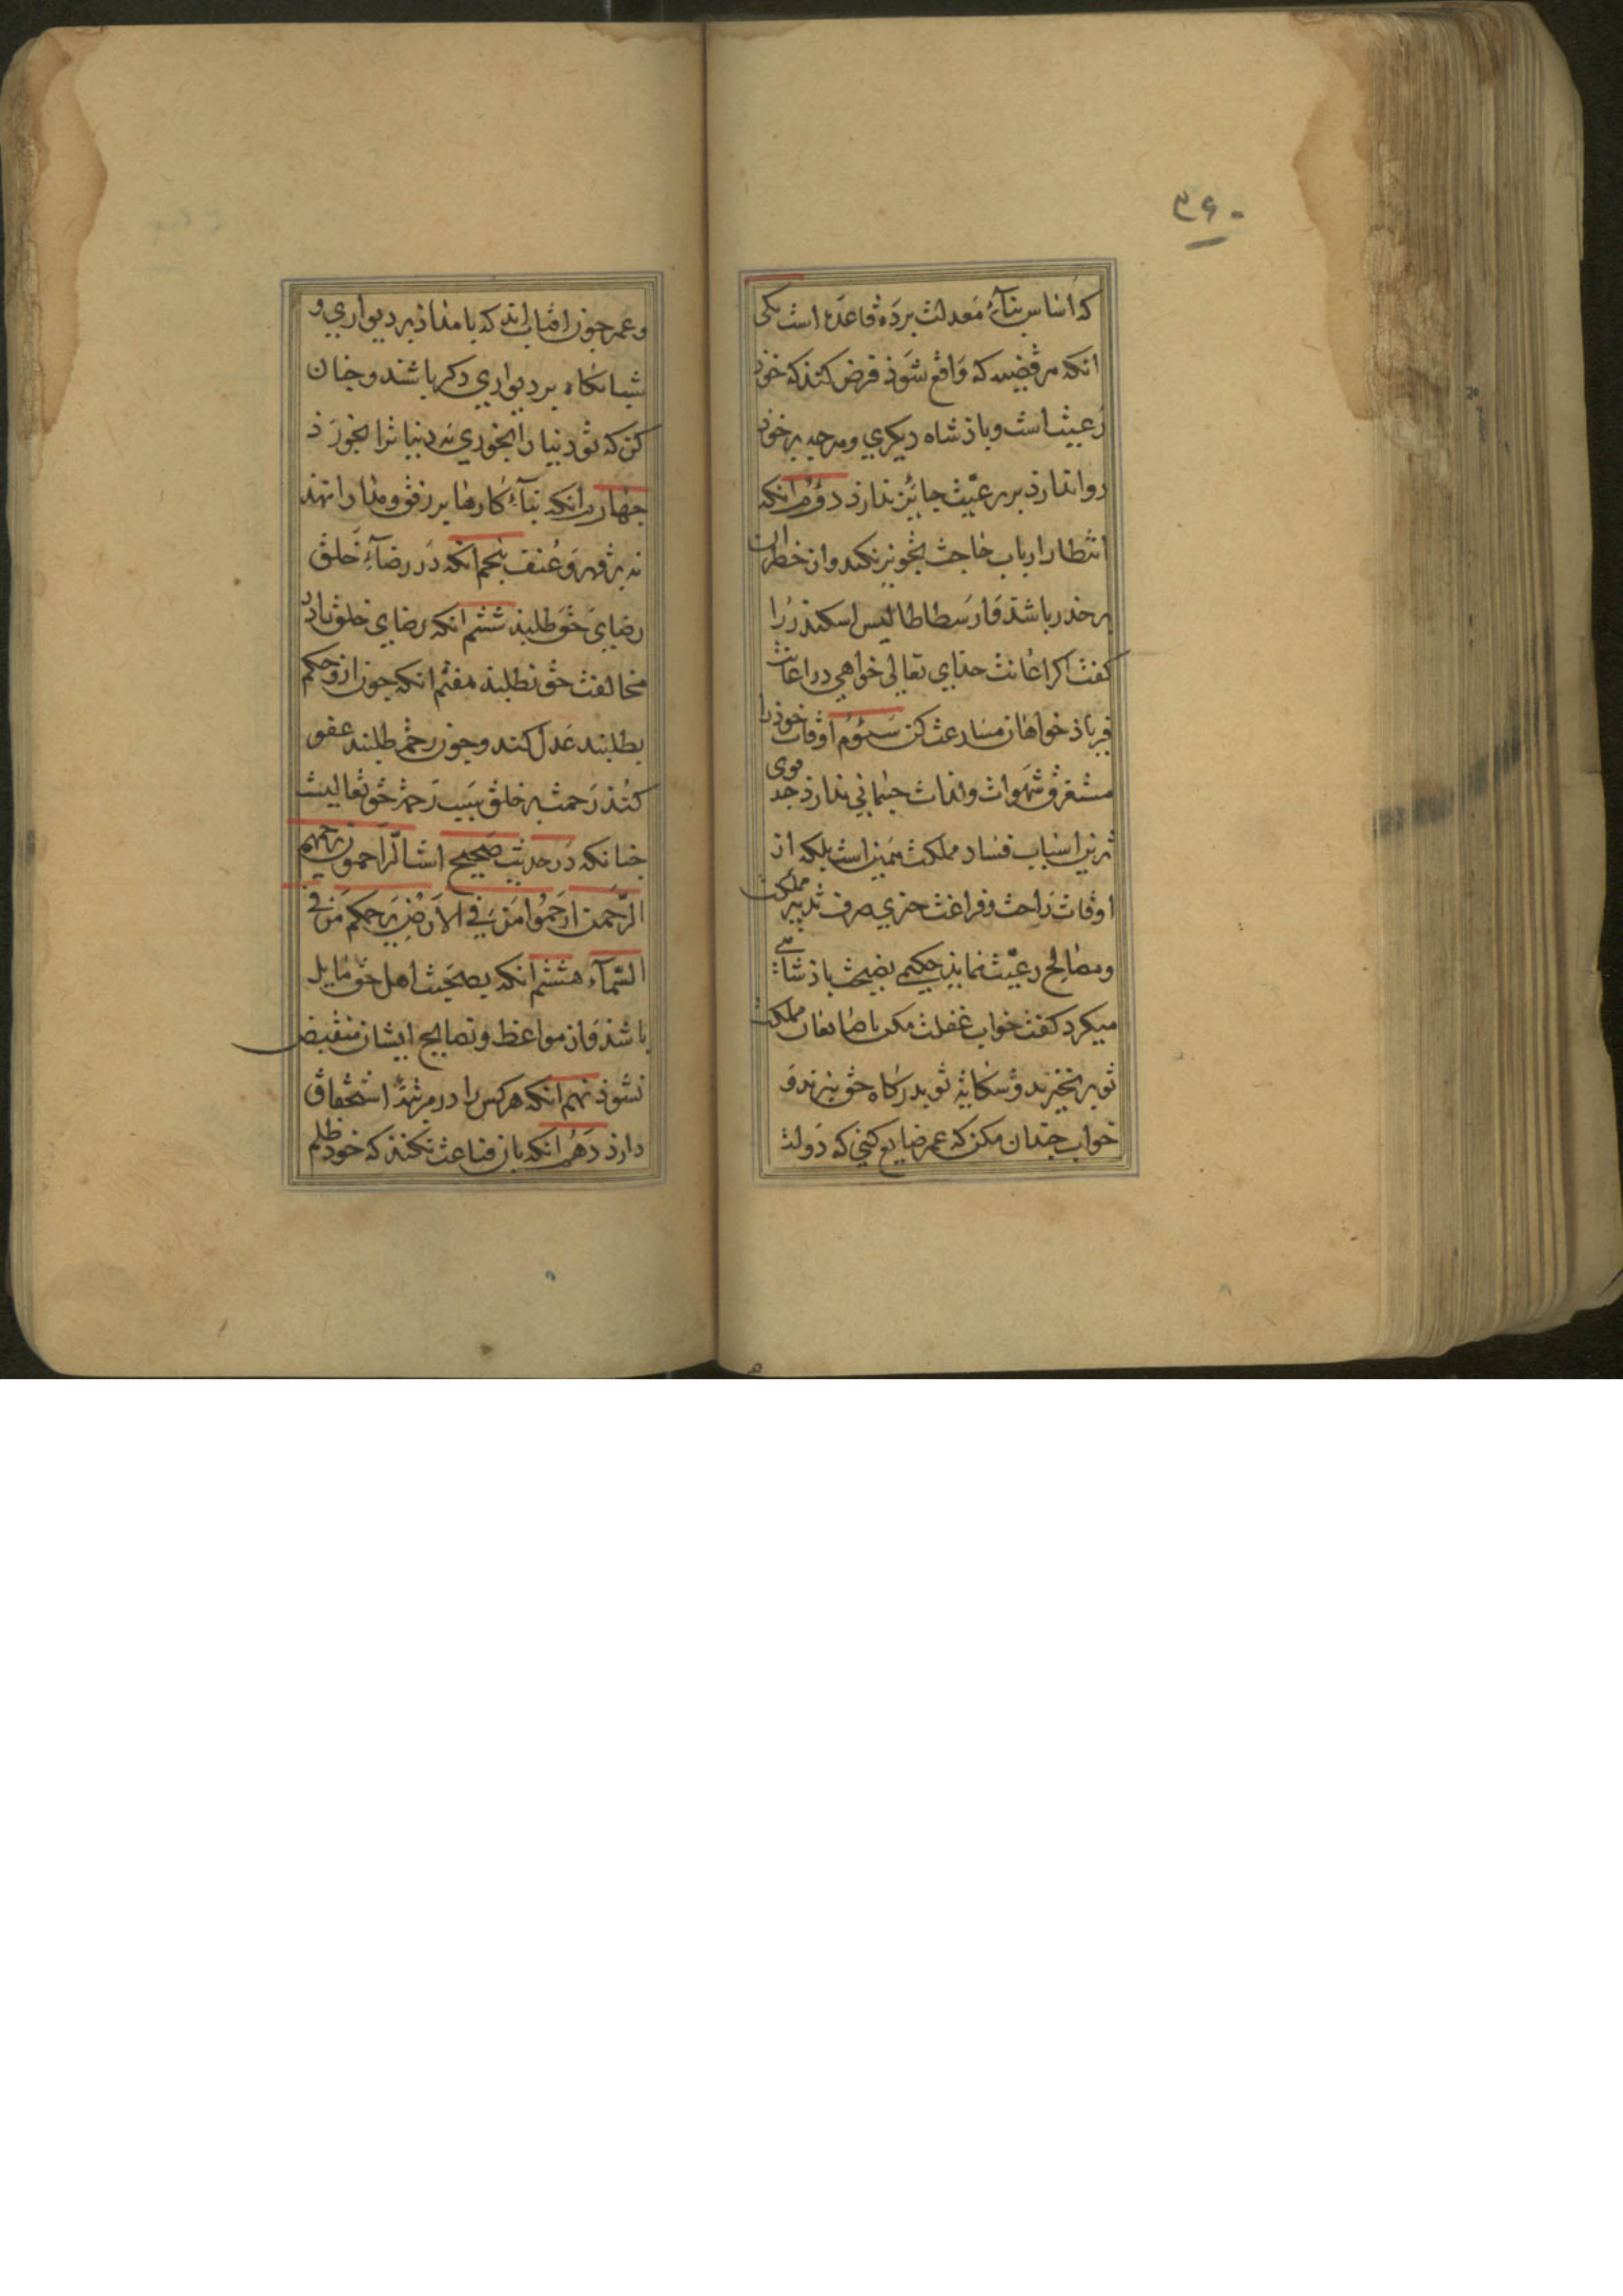 ۳۶۰
که اساس بناء معدلت بر ده قاعده است یکی
انکه هر قضیه که واقع شوذ فرض کنذ که خوذ
رعیت است و باذشاه دیکری و هرجه بر خوذ
روا ندارذ بر رعیت جایز ندارذ دوم انکه
انتظار ارباب حاجت تجویز نکند و از خطر ان
بر حذر باشذ و ارسطاطالیس اسکندر را
کفت اکر اعانت حذای تعالی خواهی در اعانت
فریاذ خواهان مسارعت کن سیوم اوقات خوذ را
مستغرق شهوات و لذات جسمانی ندارذ جه قوی
ترین اسباب فساد مملکت همین است بلکه از
اوقات راحت و فراغت جزی صرف تدبیر مملکت
و مصالح رعیت نماید حکیمی نصیحت باذشاهی
میکرد کفت خواب غفلت مکن تا ضایعان مملکت
تو بر نخیزند و شکایت تو بدرکاه حق نبرند و
خواب جندان مکن که عمر ضایع کنی که دولت
و عمر جون افتاب اند که بامداذ بر دیواری و
شبانکاه بر دیواری دکر باشند و جنان
کن که تو دنیا را بخوری نه دنیا ترا بخورذ
جهارم انکه بناء کارها بر رفق و مدارا نهند
نه بر قهر و عنف بنجم انکه در رضاء خلق
رضای حق طلبذ ششم انکه رضای خلق با
مخالفت حق نطلبذ هفتم انکه جون ازو حکم
بطلبند عدل کند و جون رحم طلبند عفو
کنذ رحمت بر خلق سبب رحمة حق تعالیست
جنانکه در حدیث صحیح است الراحمون یرحمهم
الرحمن ارحموا من فی الارض یرحمکم من فی
السماء هشتم انکه بصحبت اهل حق مایل
باشذ و از مواعظ و نصایح ایشان منقبض
نشوذ نهم انکه هر کس را در مرتبهٔ استحقاق
دارذ دهم انکه بان قناعت نکنذ که خود ظلم